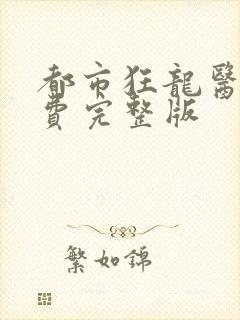 都市狂龍醫
費完整版
繁如錦